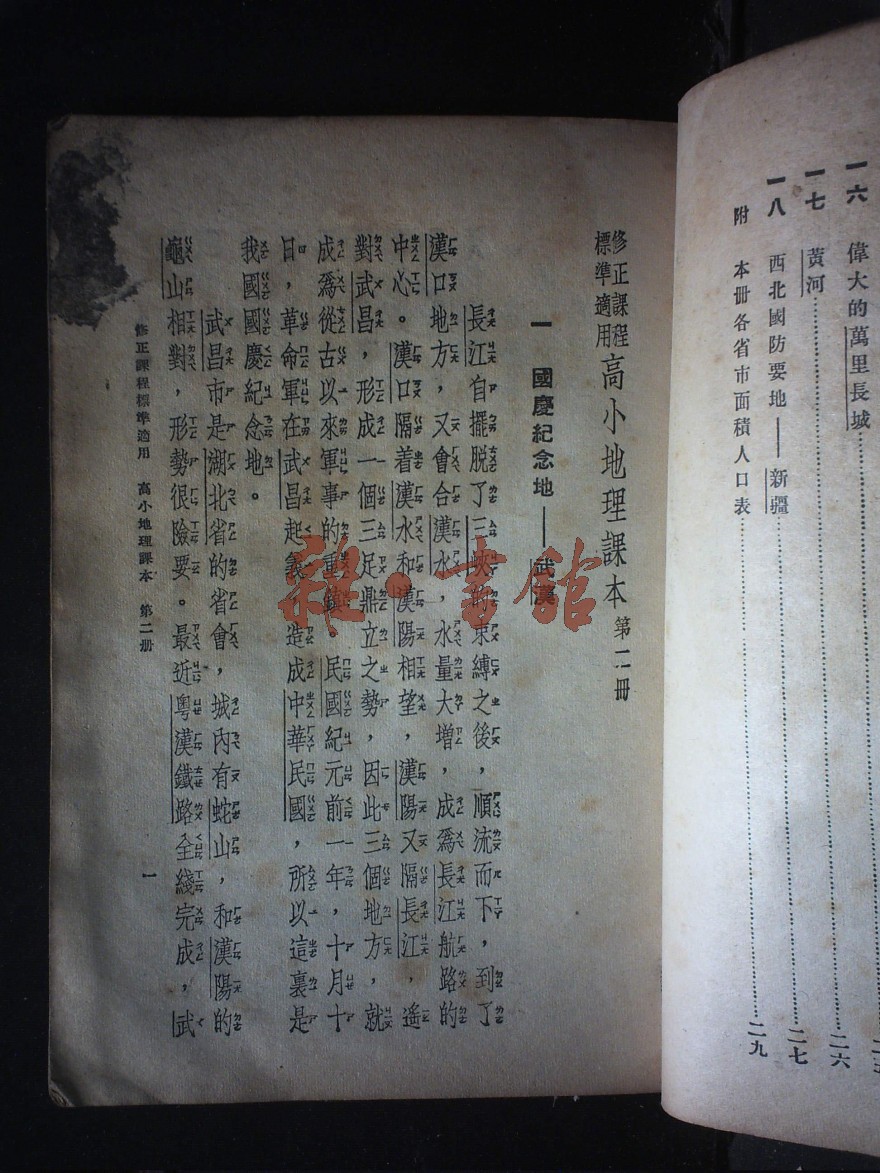 一六 偉大的萬里長城
一七 黃河……二六
一八 西北國防要地——新疆……二七
附 本册各省市面積人口表……二九
修正課程標準適用 高小地理課本 第二冊
一 國慶紀念地——武漢
長江自擺脫了三峽的束縛之後，順流而下，到了
漢口地方，又會合漢水，水量大增，成爲長江航路的
中心。漢口隔着漢水和漢陽相望，漢陽又隔長江，遙
對武昌，形成一個三足鼎立之勢，因此三個地方，就
成爲從古以來軍事的重鎮 民國紀元前一年，十月十
日，革命軍在武昌起義，造成中華民國，所以這裏是
我國國慶紀念地。
武昌市是湖北省的省會，城內有蛇山，和漢陽的
龜山相對，形勢很險要。最近粵漢鐵路全綫完成，武
修正課程標準適用 高小地理課本 第二册
一
雜·書館